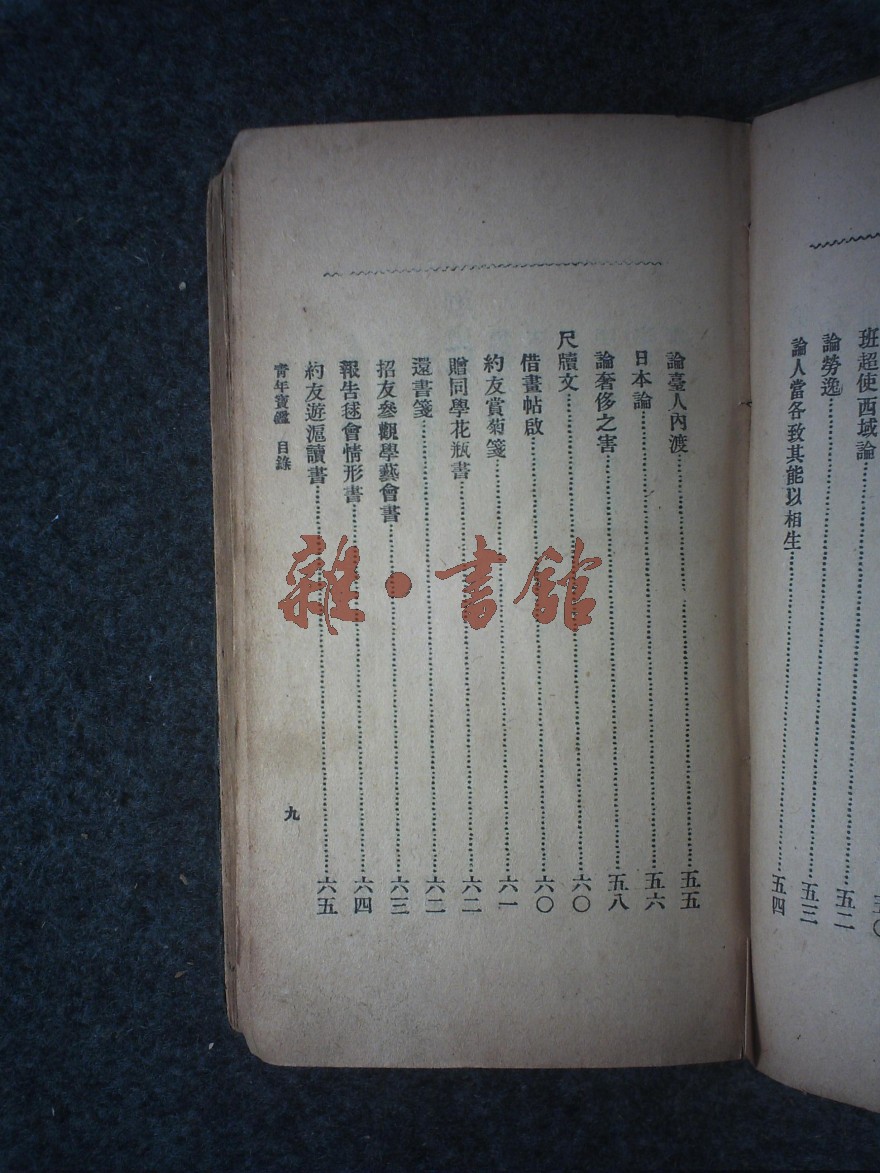 班超使西域論……五〇
論勞逸……五二
論人當各致其能以相生……五四
論臺人內渡……五五
日本論……五六
論奢侈之害……五八
尺牘文……六〇
借畫帖啟……六〇
約友賞菊箋……六一
贈同學花瓶書……六二
還書箋……六二
招友參觀學藝會書……六三
報告毬會情形書……六四
約友遊滬讀書……六五
青年寶鑑 目錄
九
雜·書館